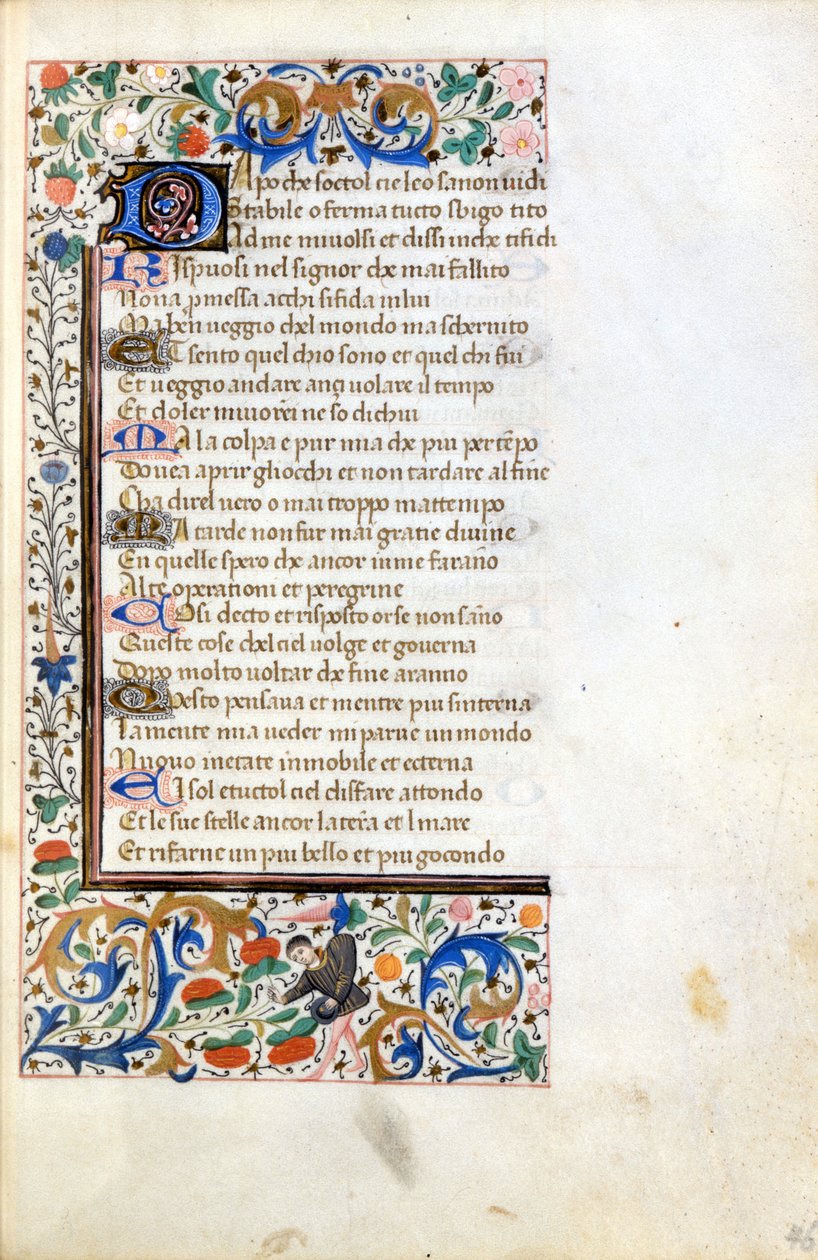 DApo che soctol cieleo sanon vidi
Stabile o ferma tucto sbigo tito
Ad me mivolsi et dissi inche tifidi
RIspuosi nel signor che mai fallito
Nona pmessa acchi sifida inlui
Ma ben veggio chel mondo ma schernito
ET sento quel chio sono et quel chi fui
Et veggio andare anzi volare il tempo
Et doler mivorrei ne so dichui
MA la colpa e pur mia che piu per tempo
Dovea aprir gliocchi et non tardare al fine
Cha direl vero o mai troppo mattempo
MA tarde non fur mai gratie divine
En quelle spero che ancor inme faranno
Alte operationi et peregrine
COsi decto et risposto orse non sanno
Queste cose chel ciel volge et governa
Dopo molto voltar che fine aranno
QVesto pensava et mentre piu sinterna
La mente mia veder mi parve un mondo
Nuovo inetate inmobile et etterna
EI sol etuctol ciel disfare attondo
Et le sue stelle ancor la terra et l mare
Et rifarne un piu bello et piu gocondo
46